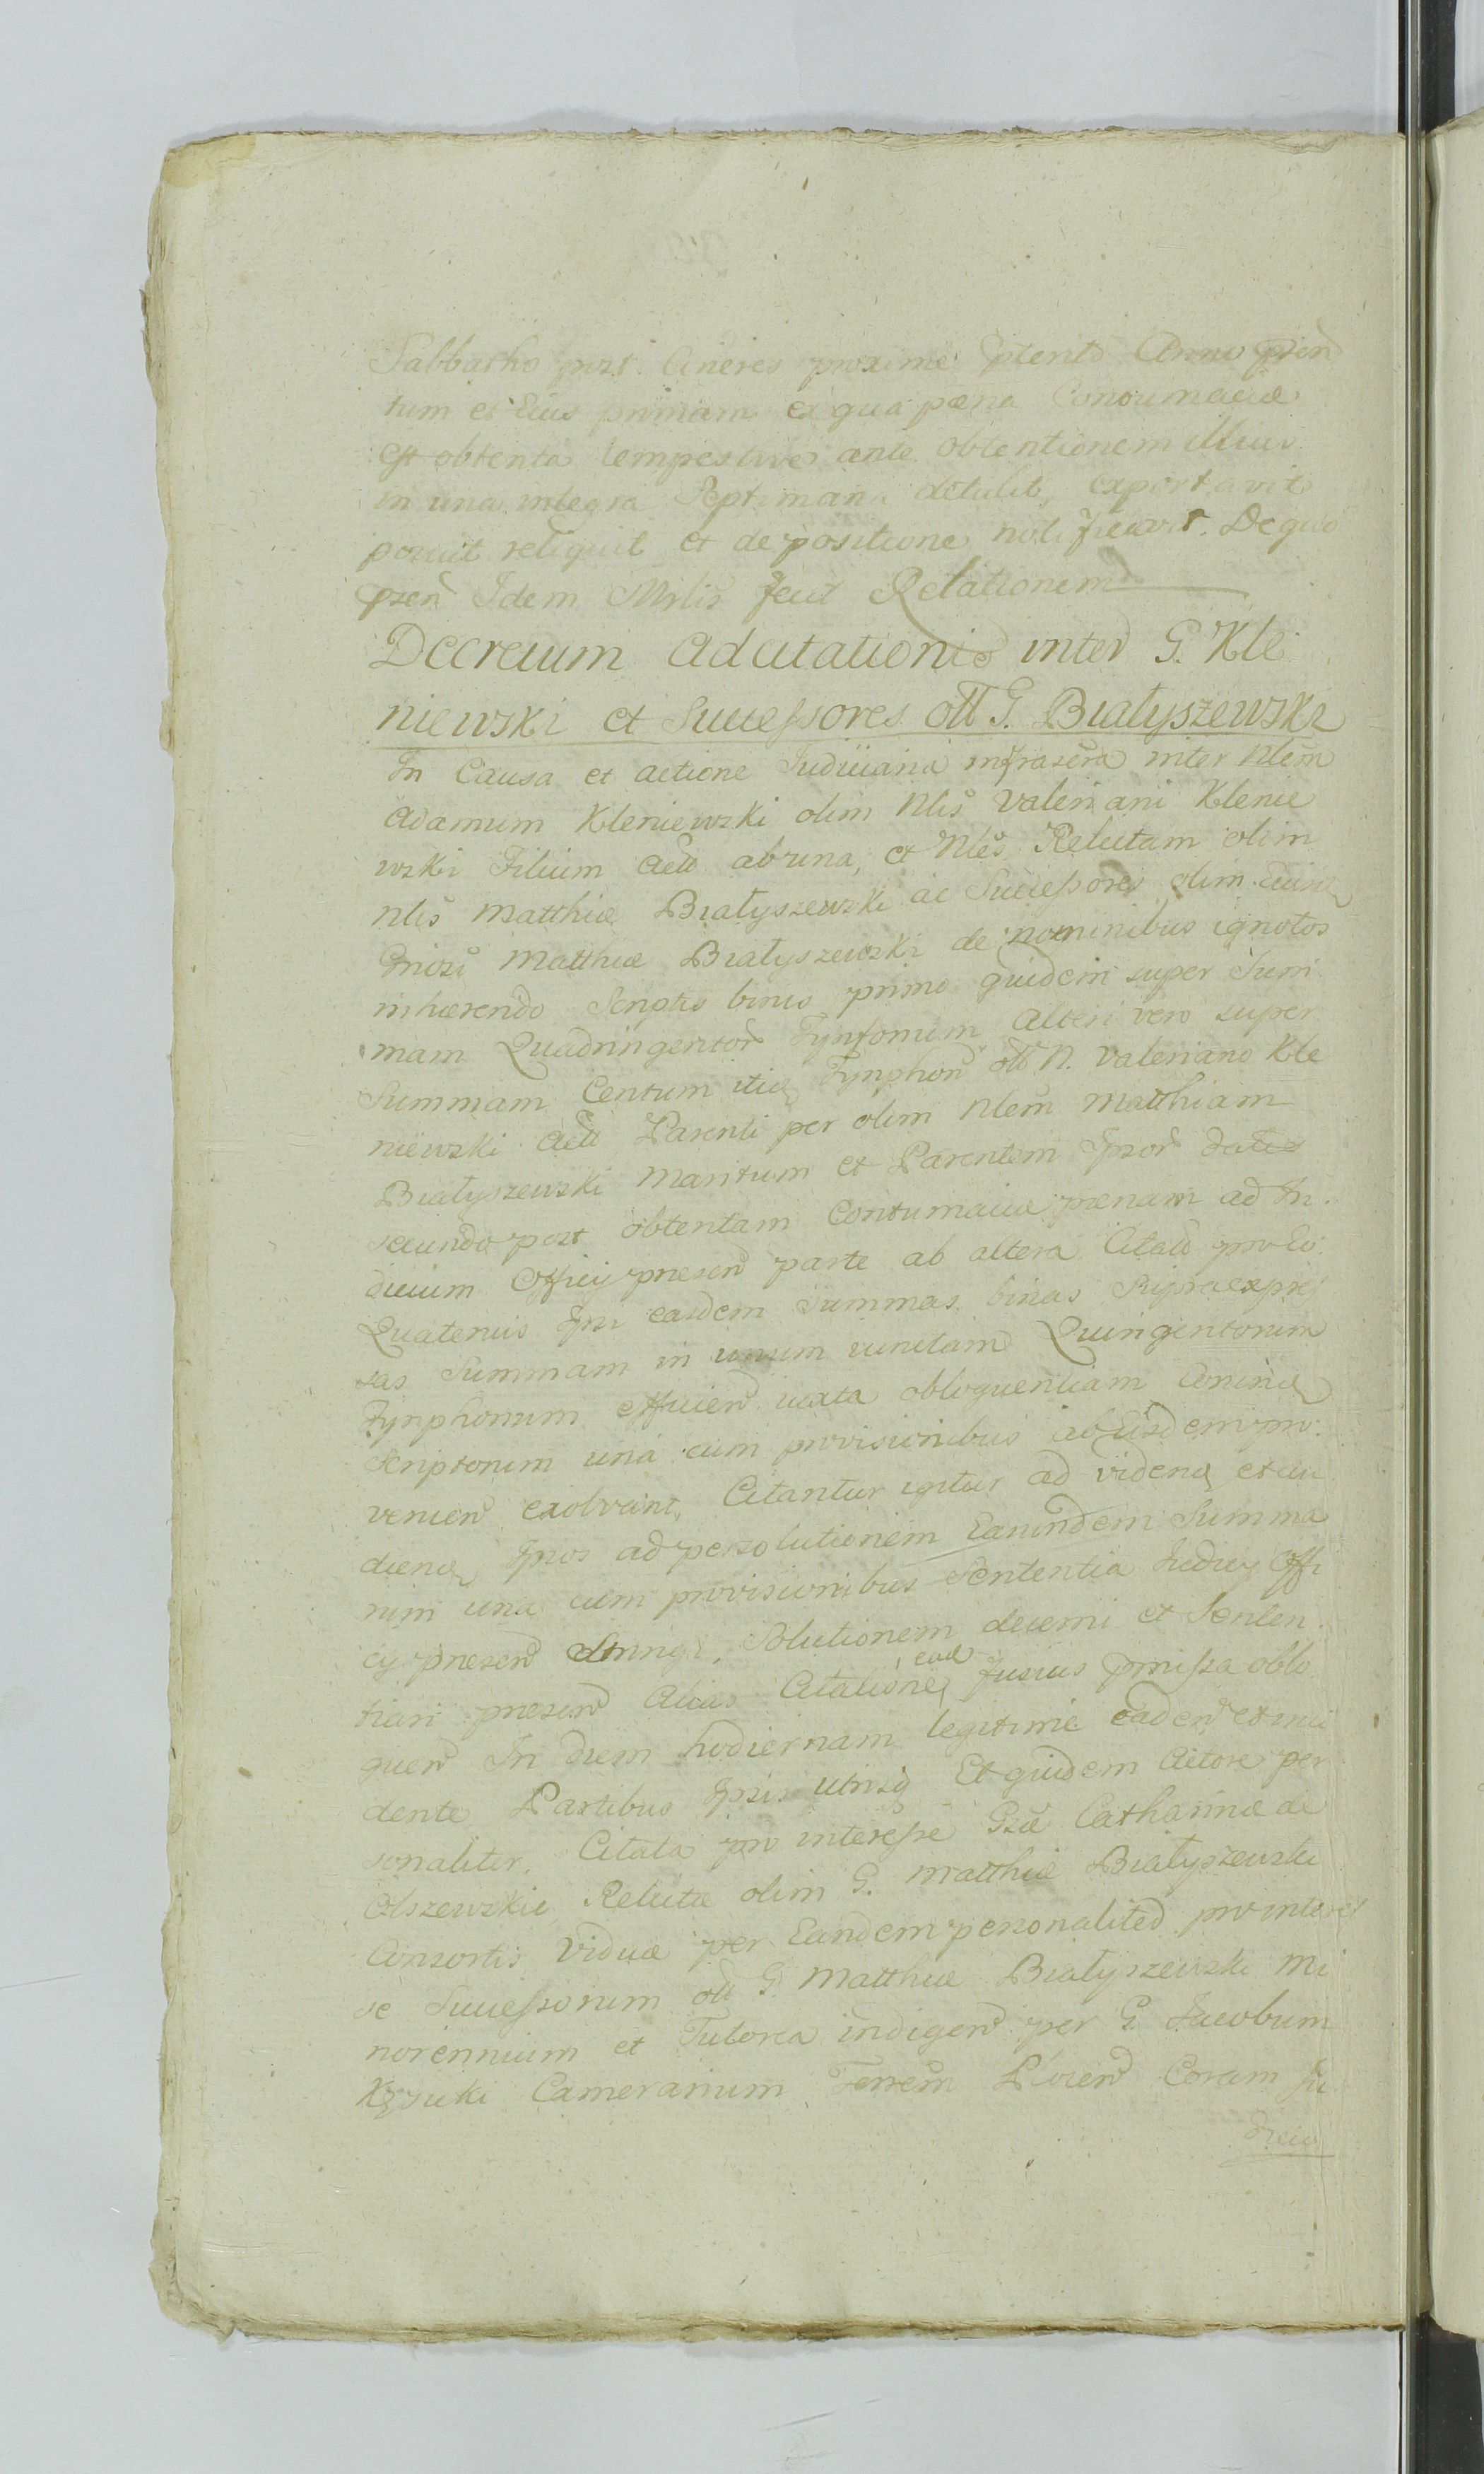 Sabbatho post Cineres proxime Anno
tum et Eius primam ex qua pœna Contumaciæ
est obtenta tempestive ante obtentionem illius
in una integra Septimana detulit, exportavit
posuit reliquit et de positione notificavit. De quo
pñen Idem Mrlis fecit Relationem
Decretum Adcitationis inter G. Kle
niewski et Successores oll G. Białyszewski
In Causa et actione Judiciaria infrascra inter Nlem
Adamum Kleniewski olim Nlis Valeriani Klenie
wski Filium ab una, et Nles Relictam olim
Nlis Matthiæ Białyszewski ac Successores olim eiusq
Gnosi Matthiæ Białyszewski de nominibus ignotos
inhærendo Scriptis binis primo quidem super Sum
mam Quadringentor Tynfonum Alteri vero super
Summam Centum itiq Tynphon oll N. Valeriano Kle
niewski Act Parenti per olim Nlem Matthiam
Białyszewski Maritum et Parentem Ipsor datis
secundo post obtentam Contumaciæ pœnam ad In
dicium Officij præsen parte ab altera Citato pro Eo
Quatenus Ipsi easdem Summas binas Supraexpres
sas Summam in unum iunctam Quingentorum
Tynphonum efficien iuxta obloquentiam
Scriptorum una cum provisionibus ab Eisdem pro
venien exolvant, Citantur igitur ad videnq et au
diendq Ipsos ad persolutionem Earundem Summa
rum una cum provisionibus Sententia Judicij Offi
cij præsen Stringi, Solutionem decerni et Senten
tiari præsen Alias Citatione ead fusius pmissa oblo
quen In diem hodiernam legitime caden et inci
dente Partibus Ipsis utrisq Et quidem Actore per
sonaliter, Citata pro interesse Gsæ Catharinæ de
Olszewskie Relictæ olim G. Matthiæ Białyszewski
Consortis Viduæ per Eandem personaliter pro interes
se Successorum oll G. Matthiæ Białyszewski Mi
norennium et Tutorea indigen per G. Jacobum
Camerarium Terrem Coram Ju
dicio